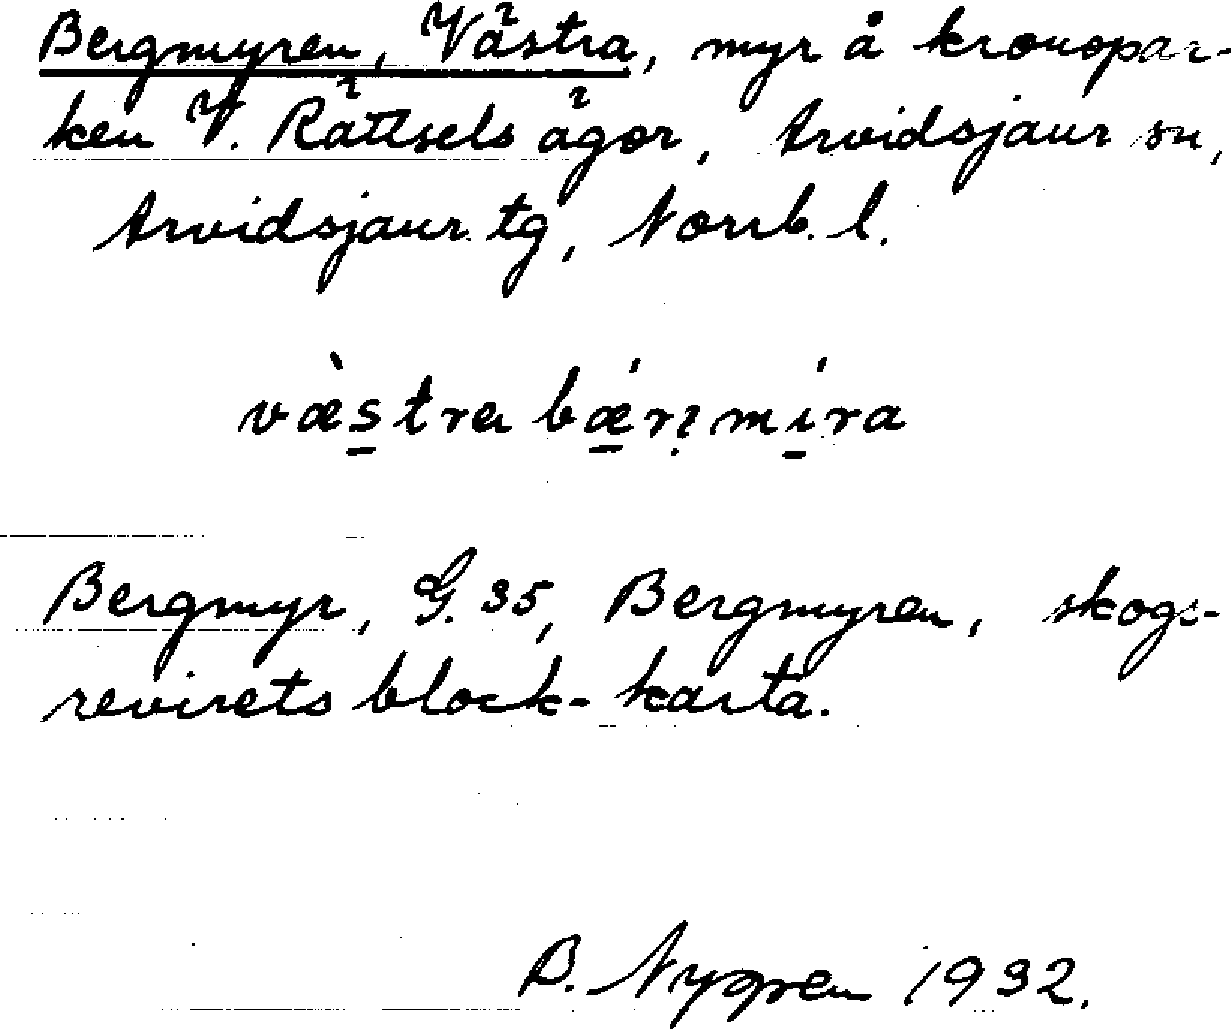 Bergmyren, Västra, myr å kronopar-
ken V. Rättsels ägor, Arvidsjaur sn,
Arvidsjaur tg, Norrb. l.
væ̀stra bǽrımíra
Bergmyr, G.35, Bergmyren, skogs-
revirets block-karta.
B. Nygren 1932.